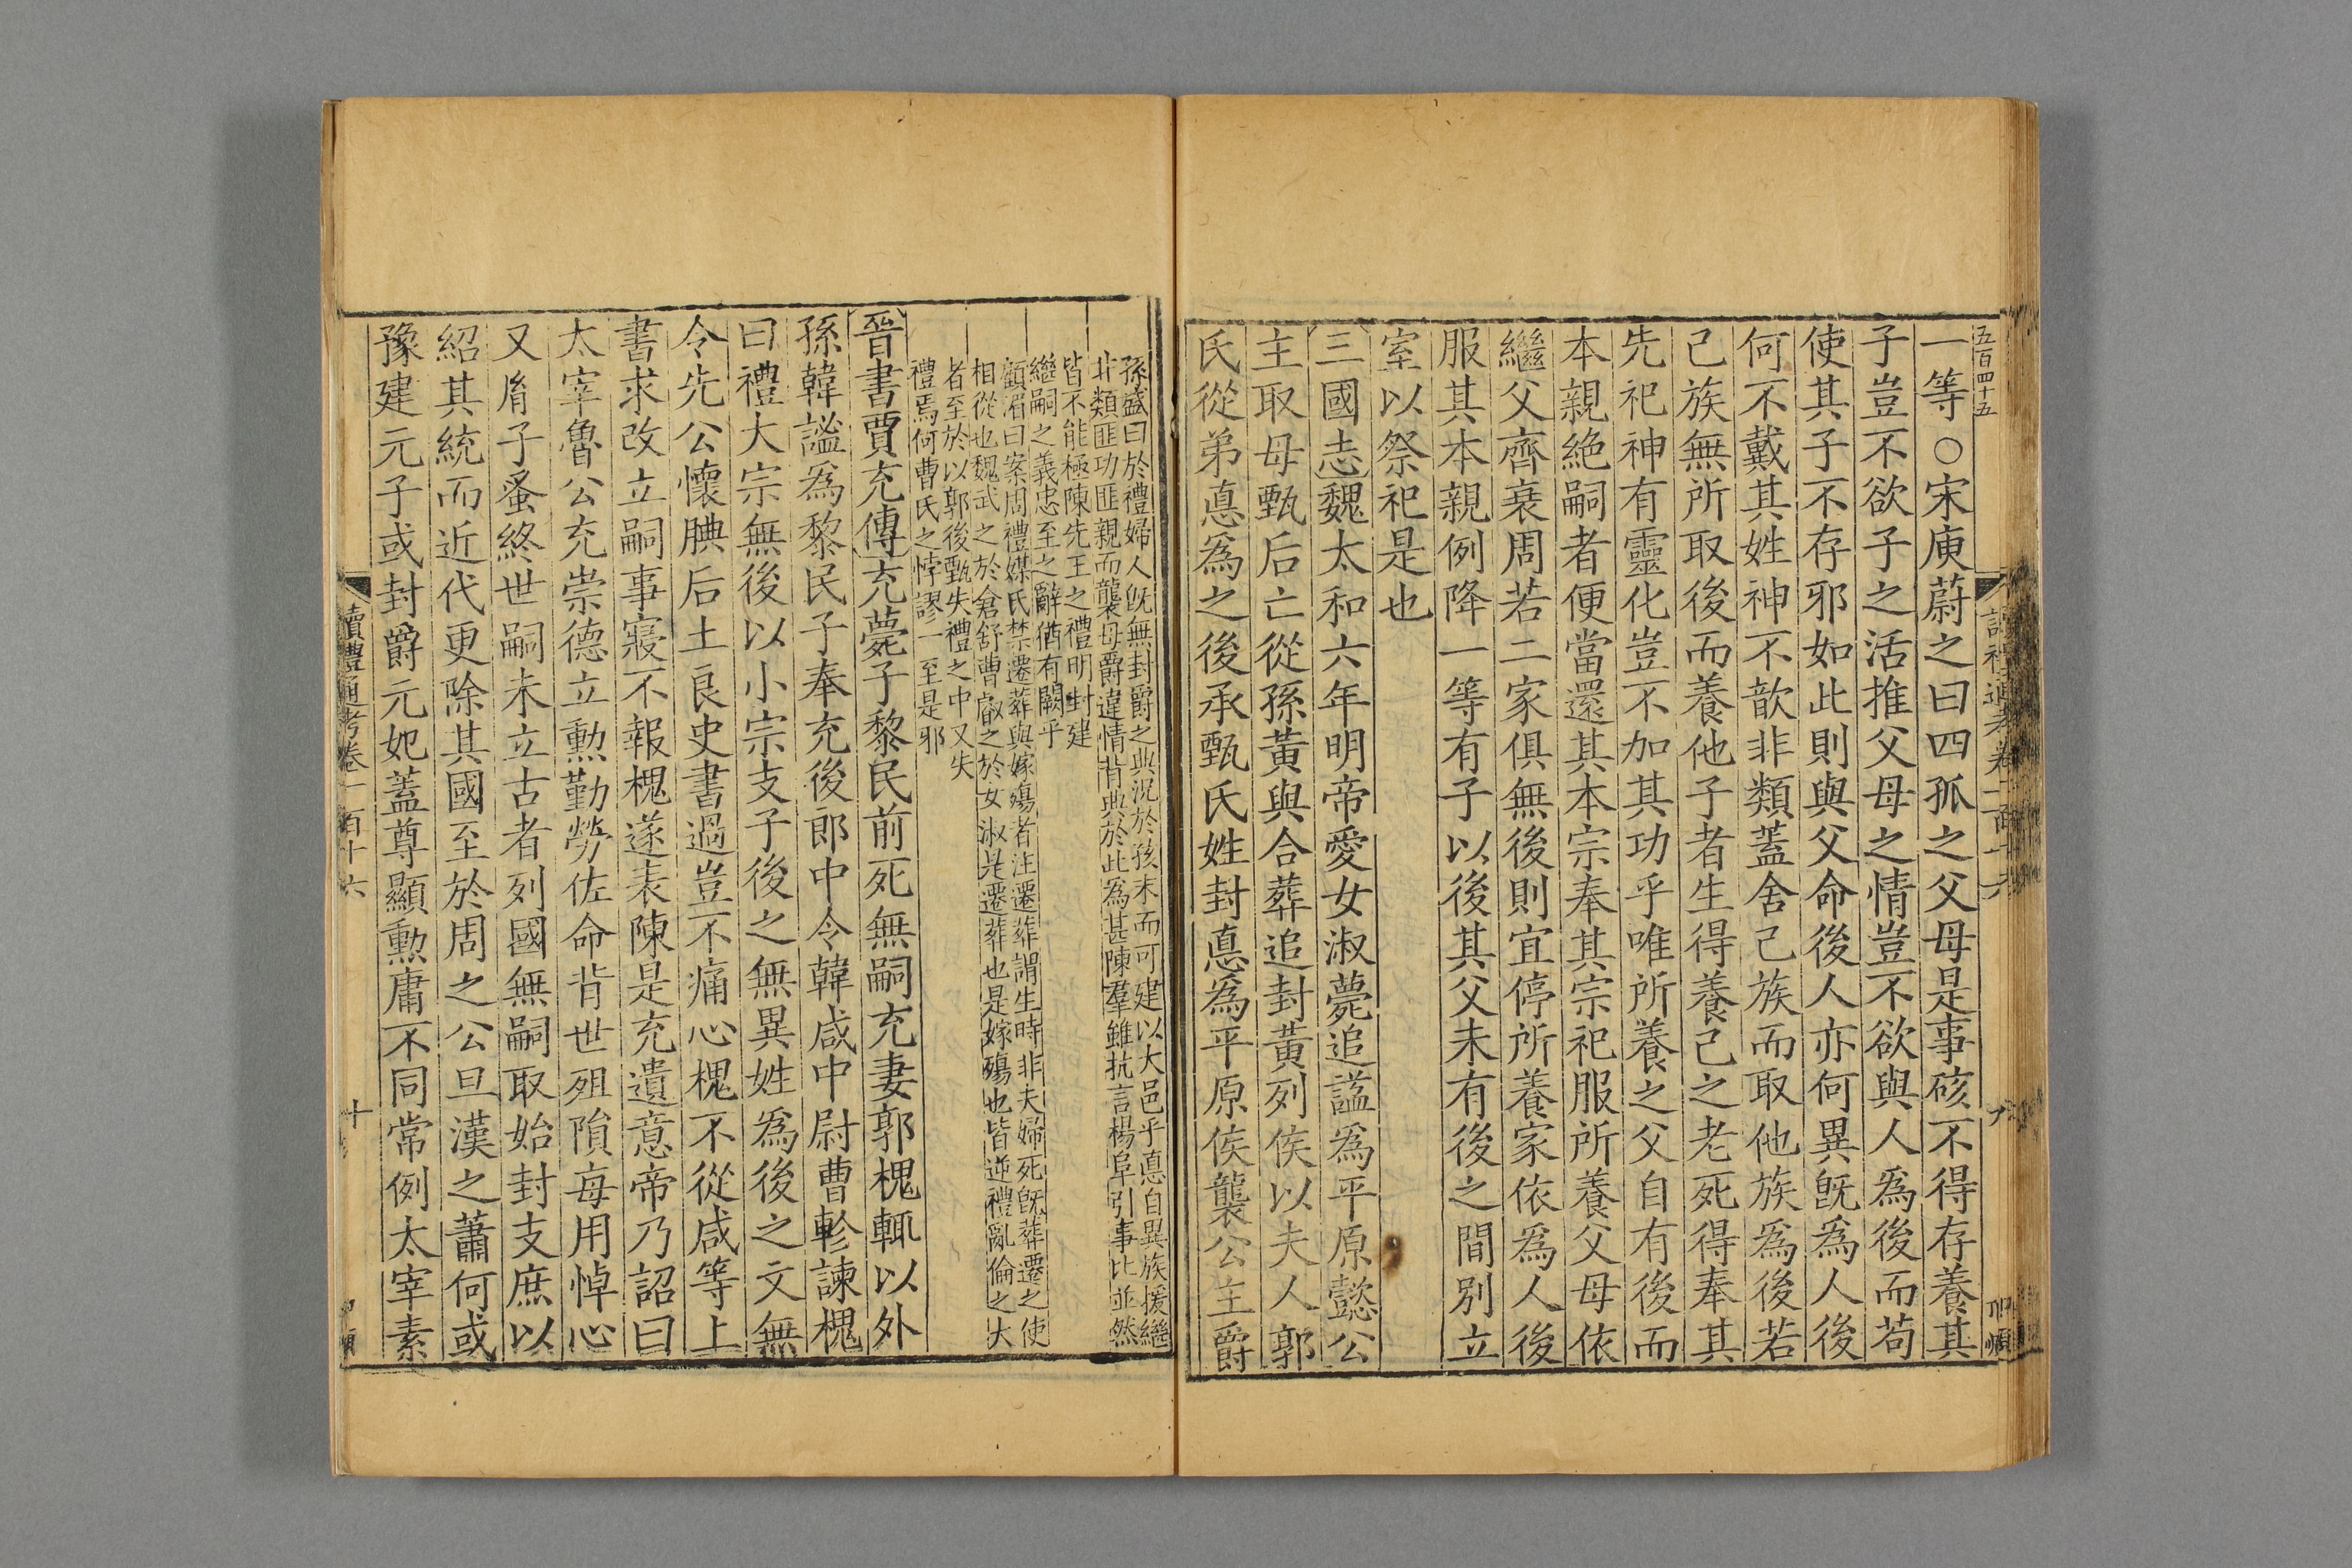 五百四十五
讀禮通考卷一百十六
九
一等○宋庾蔚之曰四孤之父母是事硋不得存養其
子豈不欲子之活推父母之情豈不欲與人爲後而苟
使其子不存邪如此則與父命後人亦何異旣爲人後
何不戴其姓神不歆非類蓋舍己族而取他族爲後若
己族無所取後而養他子者生得養己之老死得奉其
先祀神有靈化豈不加其功乎唯所養之父自有後而
本親絶嗣者便當還其本宗奉其宗祀服所養父母依
繼父齊衰周若二家俱無後則宜停所養家依爲人後
服其本親例降一等有子以後其父未有後之間別立
室以祭祀是也
三國志魏太和六年明帝愛女淑薨追謚爲平原懿公
主取母甄后亡從孫黃與合葬追封黃列侯以夫人郭
氏從弟悳爲之後承甄氏姓封悳爲平原侯襲公主爵
孫盛曰於禮婦人旣無封爵之典況於孩末而可建以大邑乎悳自異族援繼
非類匪功匪親而襲母爵違情背典於此為甚陳羣雖抗言楊阜引事比並然
皆不能極陳先王之禮明封建
繼嗣之義忠至之辭猶有闕乎
顧湄曰案周禮媒氏禁遷葬與嫁殤者注遷葬謂生時非夫婦死旣葬遷之使
相從也魏武之於倉舒曹叡之於女淑是遷葬也是嫁殤也皆逆禮亂倫之大
者至於以郭後甄失禮之中又失
禮焉何曹氏之悖謬一至是邪
晉書賈充傳充薨子黎民前死無嗣充妻郭槐輒以外
孫韓謐爲黎民子奉充後郎中令韓咸中尉曹軫諫槐
曰禮大宗無後以小宗支子後之無異姓爲後之文無
令先公懷腆后土良史書過豈不痛心槐不從咸等上
書求改立嗣事寢不報槐遂表陳是充遺意帝乃詔曰
太宰魯公充崇德立勲勤勞佐命背世殂隕每用悼心
又胤子蚤終世嗣未立古者列國無嗣取始封支庶以
紹其統而近代更除其國至於周之公旦漢之蕭何或
豫建元子或封爵元妃蓋尊顯勲庸不同常例太宰素
讀禮通考卷一百十六
十